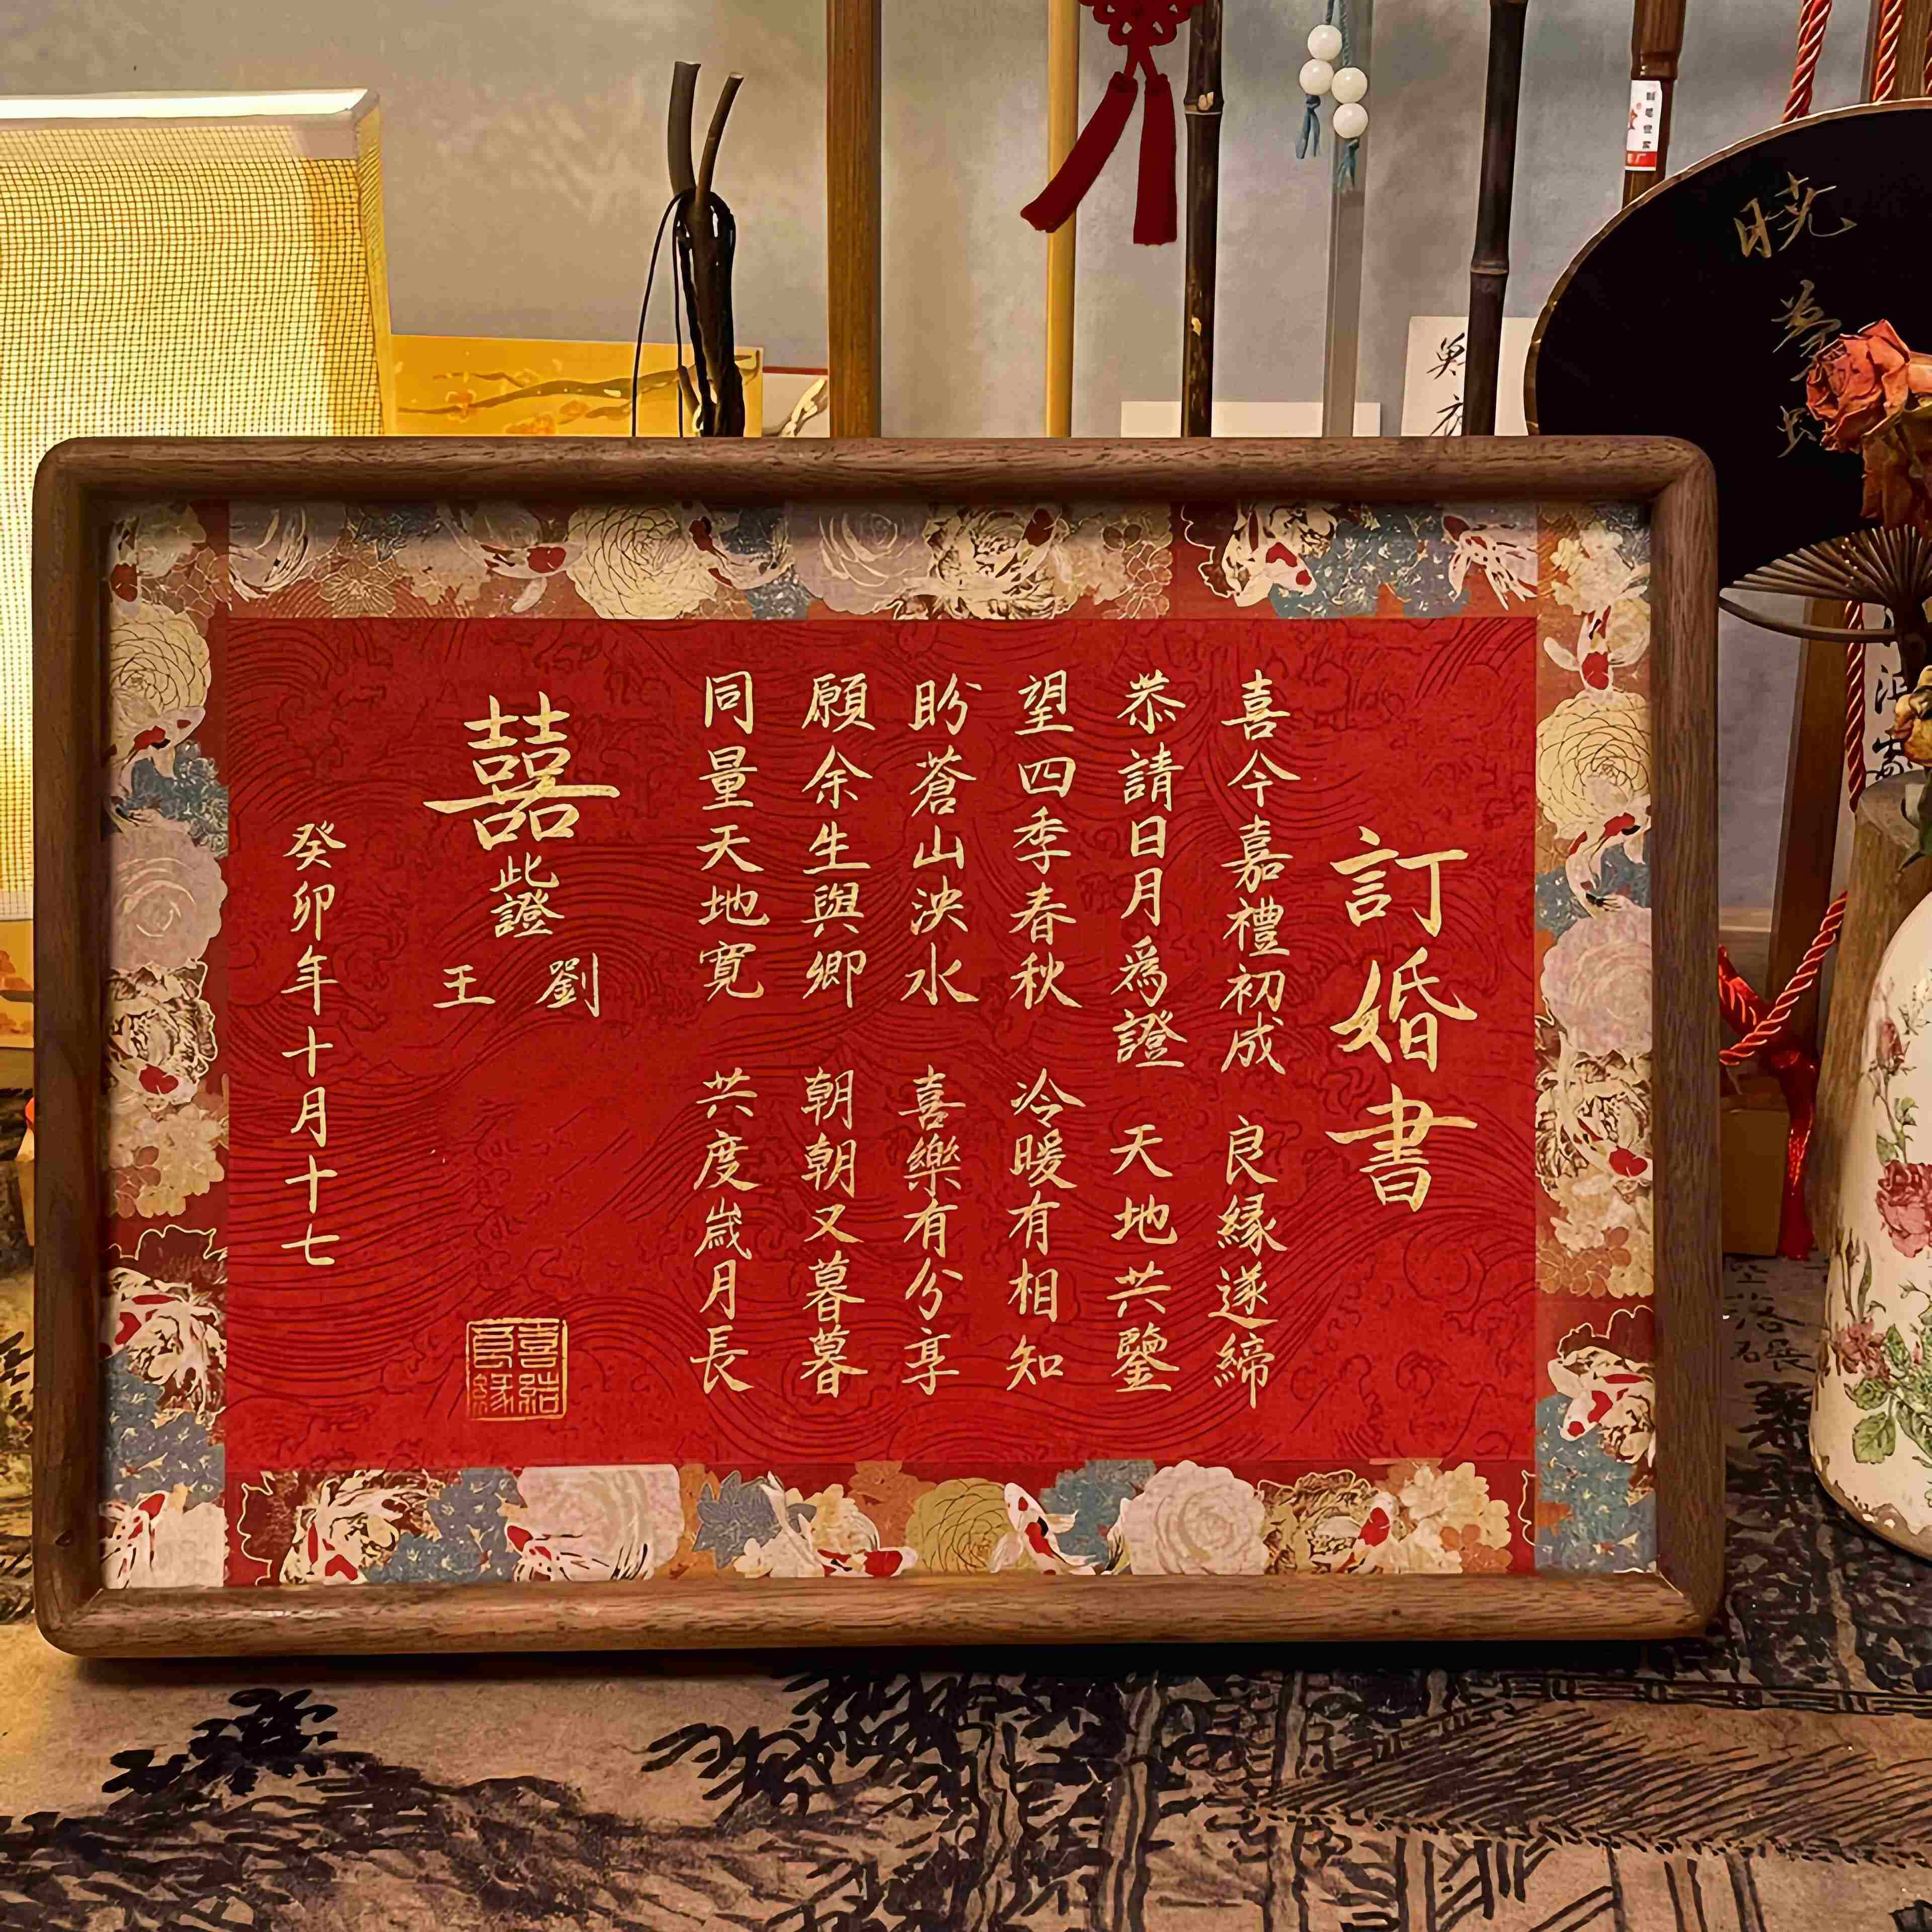 訂婚書
喜今嘉禮初成 良緣遂締
恭請日月為證 天地共鑒
望四季春秋 冷暖有相知
盼蒼山泱水 喜樂有分享
願余生與卿 朝朝又暮暮
同量天地寬 共度歲月長
囍
此證
劉
王
癸卯年十月十七
喜結
良緣
曉夢